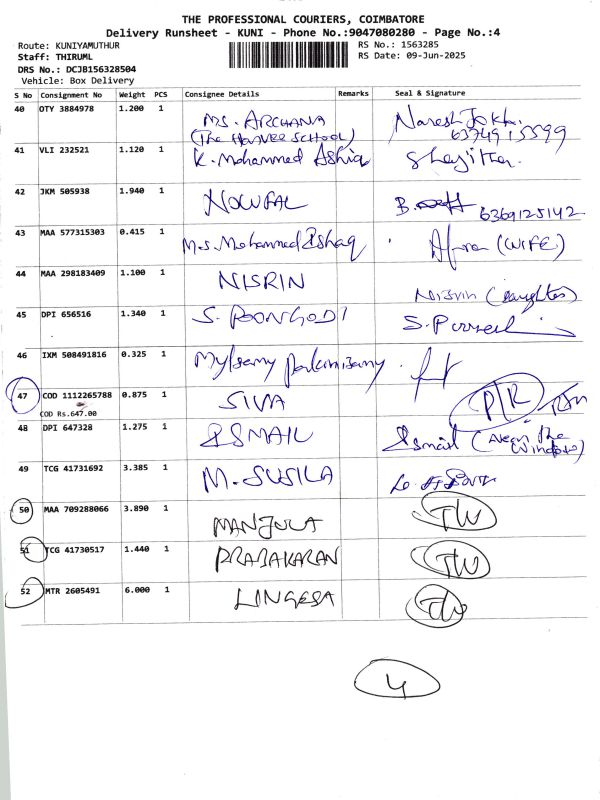 THE PROFESSIONAL COURIERS, COIMBATORE
Delivery Runsheet - KUNI - Phone No.:9047080280 - Page No.:4
Route: KUNIYAMUTHUR RS No.: 1563285
Staff: THIRUML RS Date: 09-Jun-2025
DRS No.: DCJB156328504
Vehicle: Box Delivery
S No Consignment No Weight PCS Consignee Details Remarks Seal & Signature
40 OTY 3884978 1.200 1 MS. ARCHANA
(The Harvee School) 6374915599
41 VLI 232521 1.120 1 K. Mohammed Ashiq
42 JKM 505938 1.940 1 NOWFAL B. 6369125142
43 MAA 577315303 0.415 1 M.S. Mohammed Ishaq (WIFE)
44 MAA 298183409 1.100 1 NISRIN Nisrin (Daughter)
45 DPI 656516 1.340 1 S. POONGODI S.
46 IXM 508491816 0.325 1
47 COD 1112265788 0.875 1 SIVA P/R
COD Rs.647.00
48 DPI 647328 1.275 1 ISMAIL Ismail (Near the
Window)
49 TCG 41731692 3.385 1 M. SUSILA
50 MAA 709288066 3.890 1 MANJULA TW
51 TCG 41730517 1.440 1 PRABAKARAN TW
52 MTR 2605491 6.000 1 LINGESA TW
4